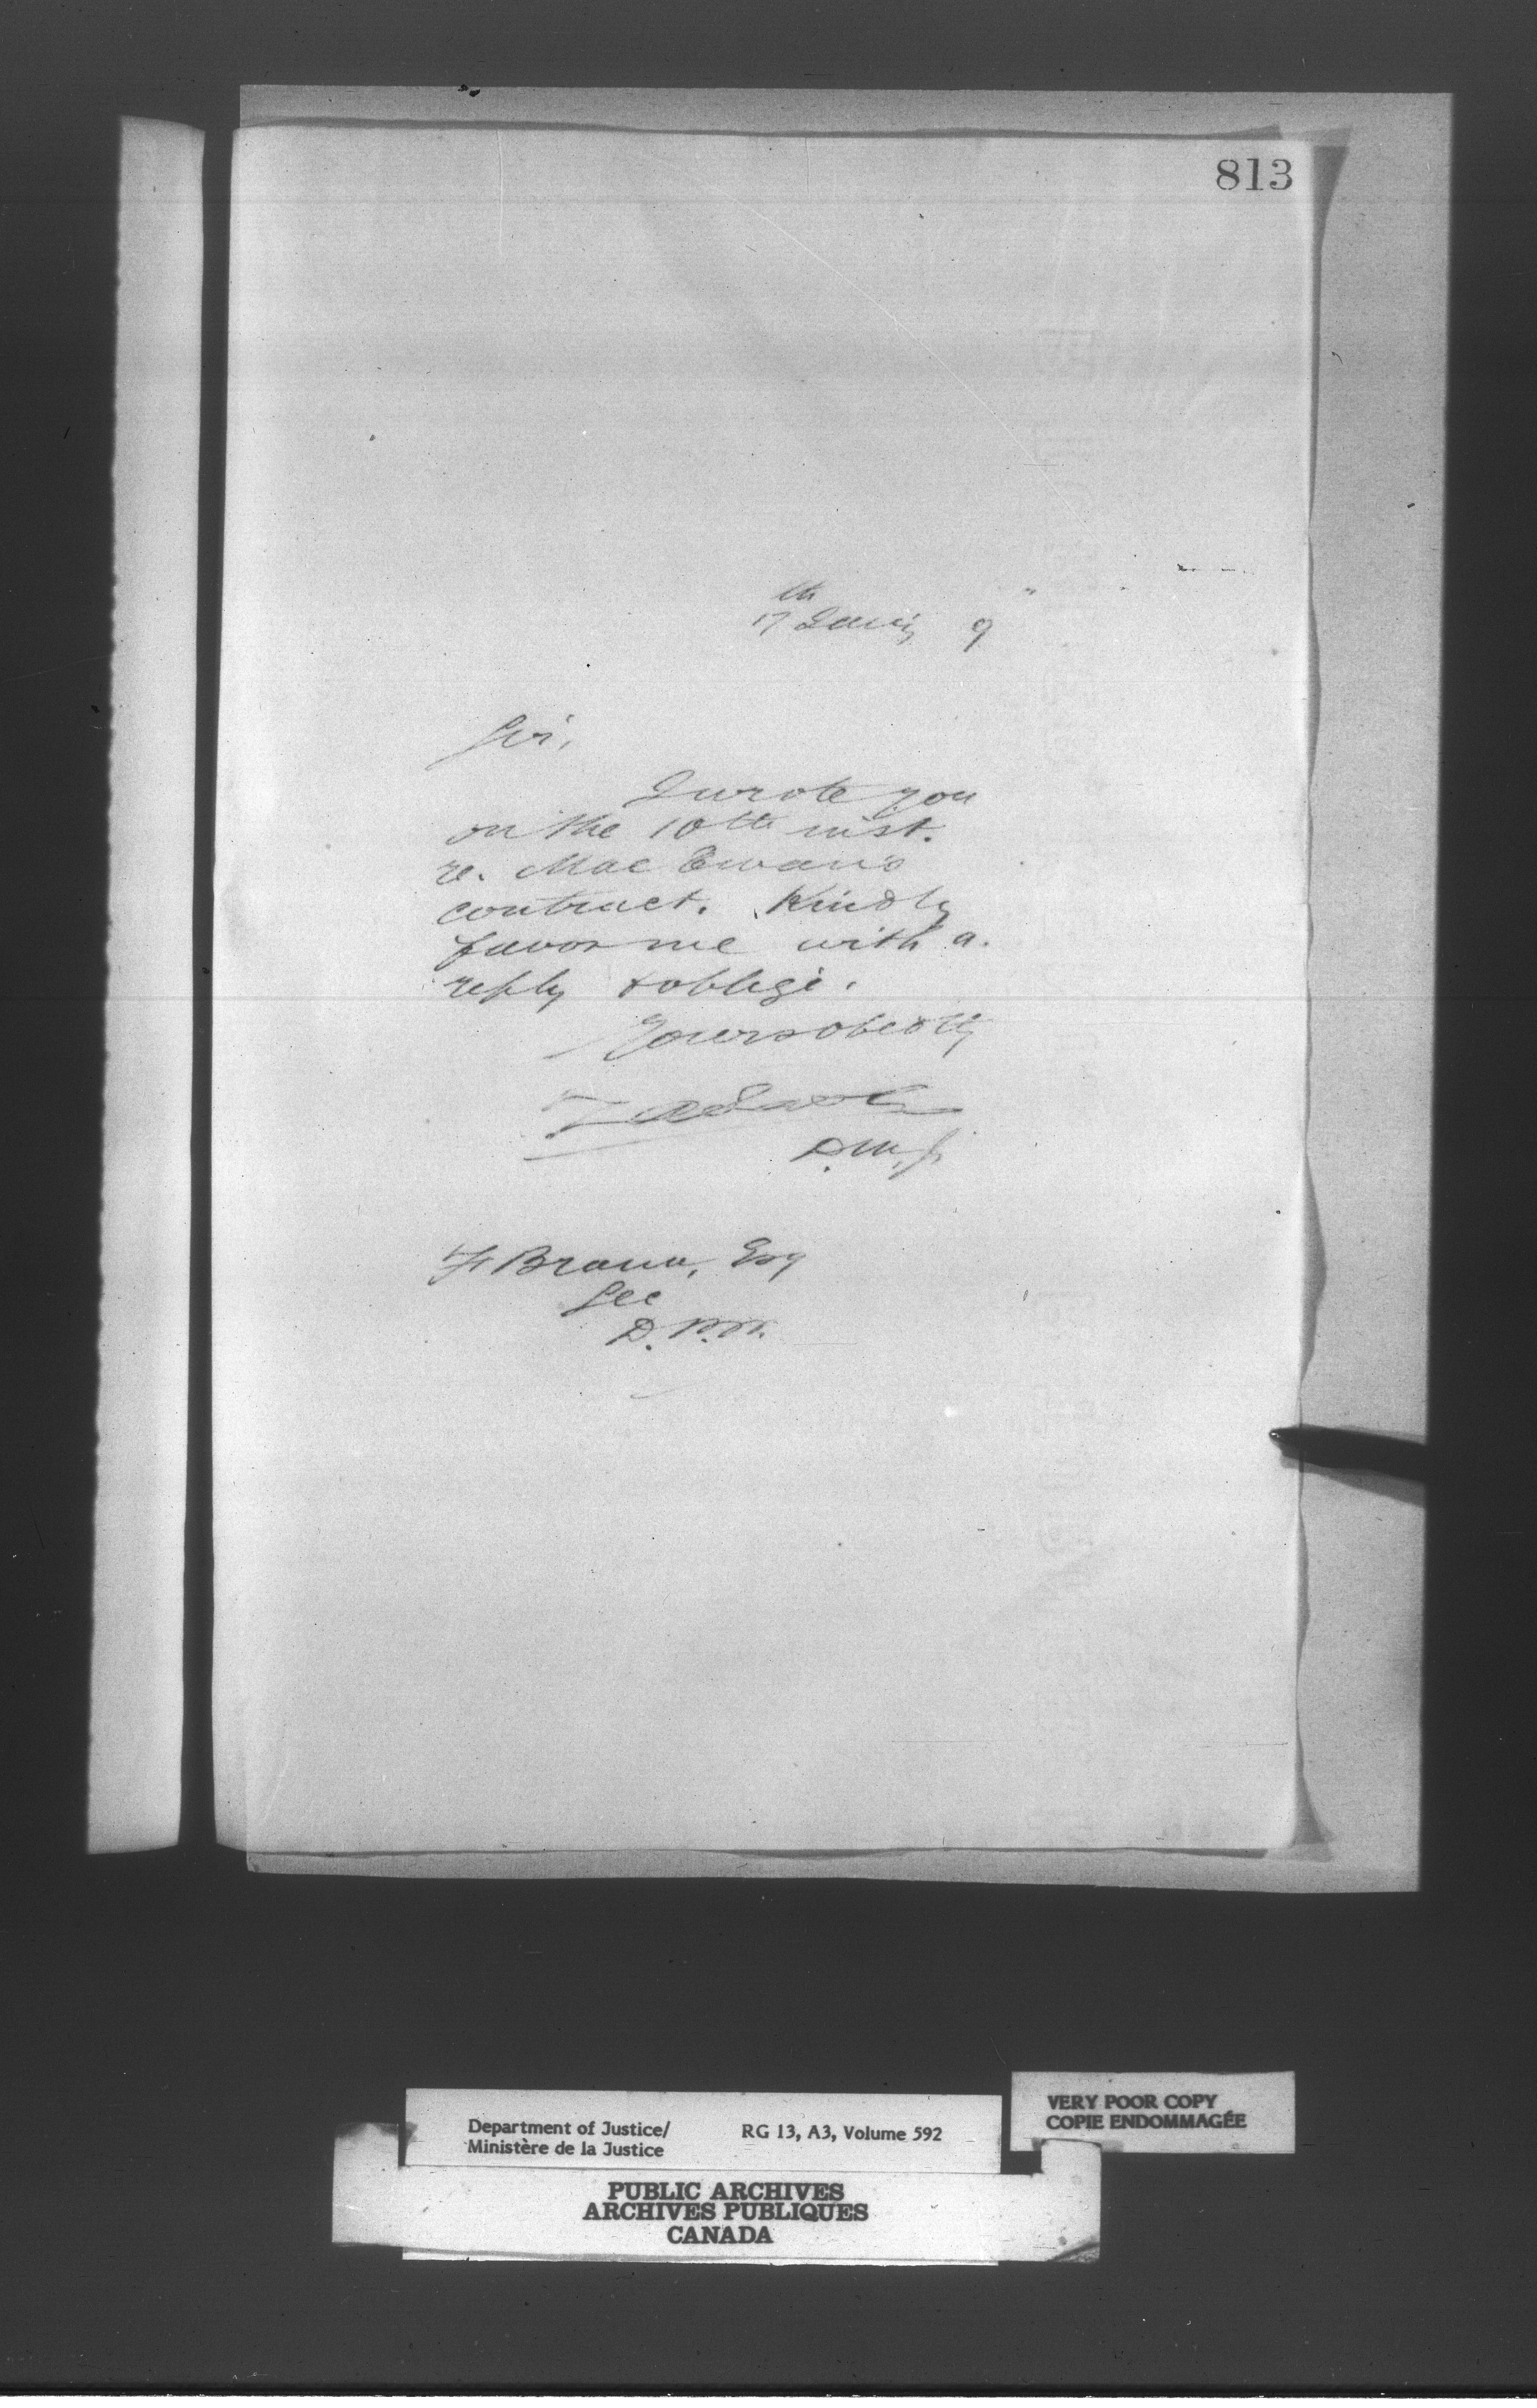 813
17th Jany 9
Sir,
I wrote you
on the 10th inst.
re. Mac Ewan's
contract. Kindly
favor me with a
reply & oblige.
Yours obedtly
D.M.J.
F Braun, Esq
Sec
D.P.W.
Department of Justice/
Ministère de la Justice
RG 13, A3, Volume 592
VERY POOR COPY
COPIE ENDOMMAGÉE
PUBLIC ARCHIVES
ARCHIVES PUBLIQUES
CANADA